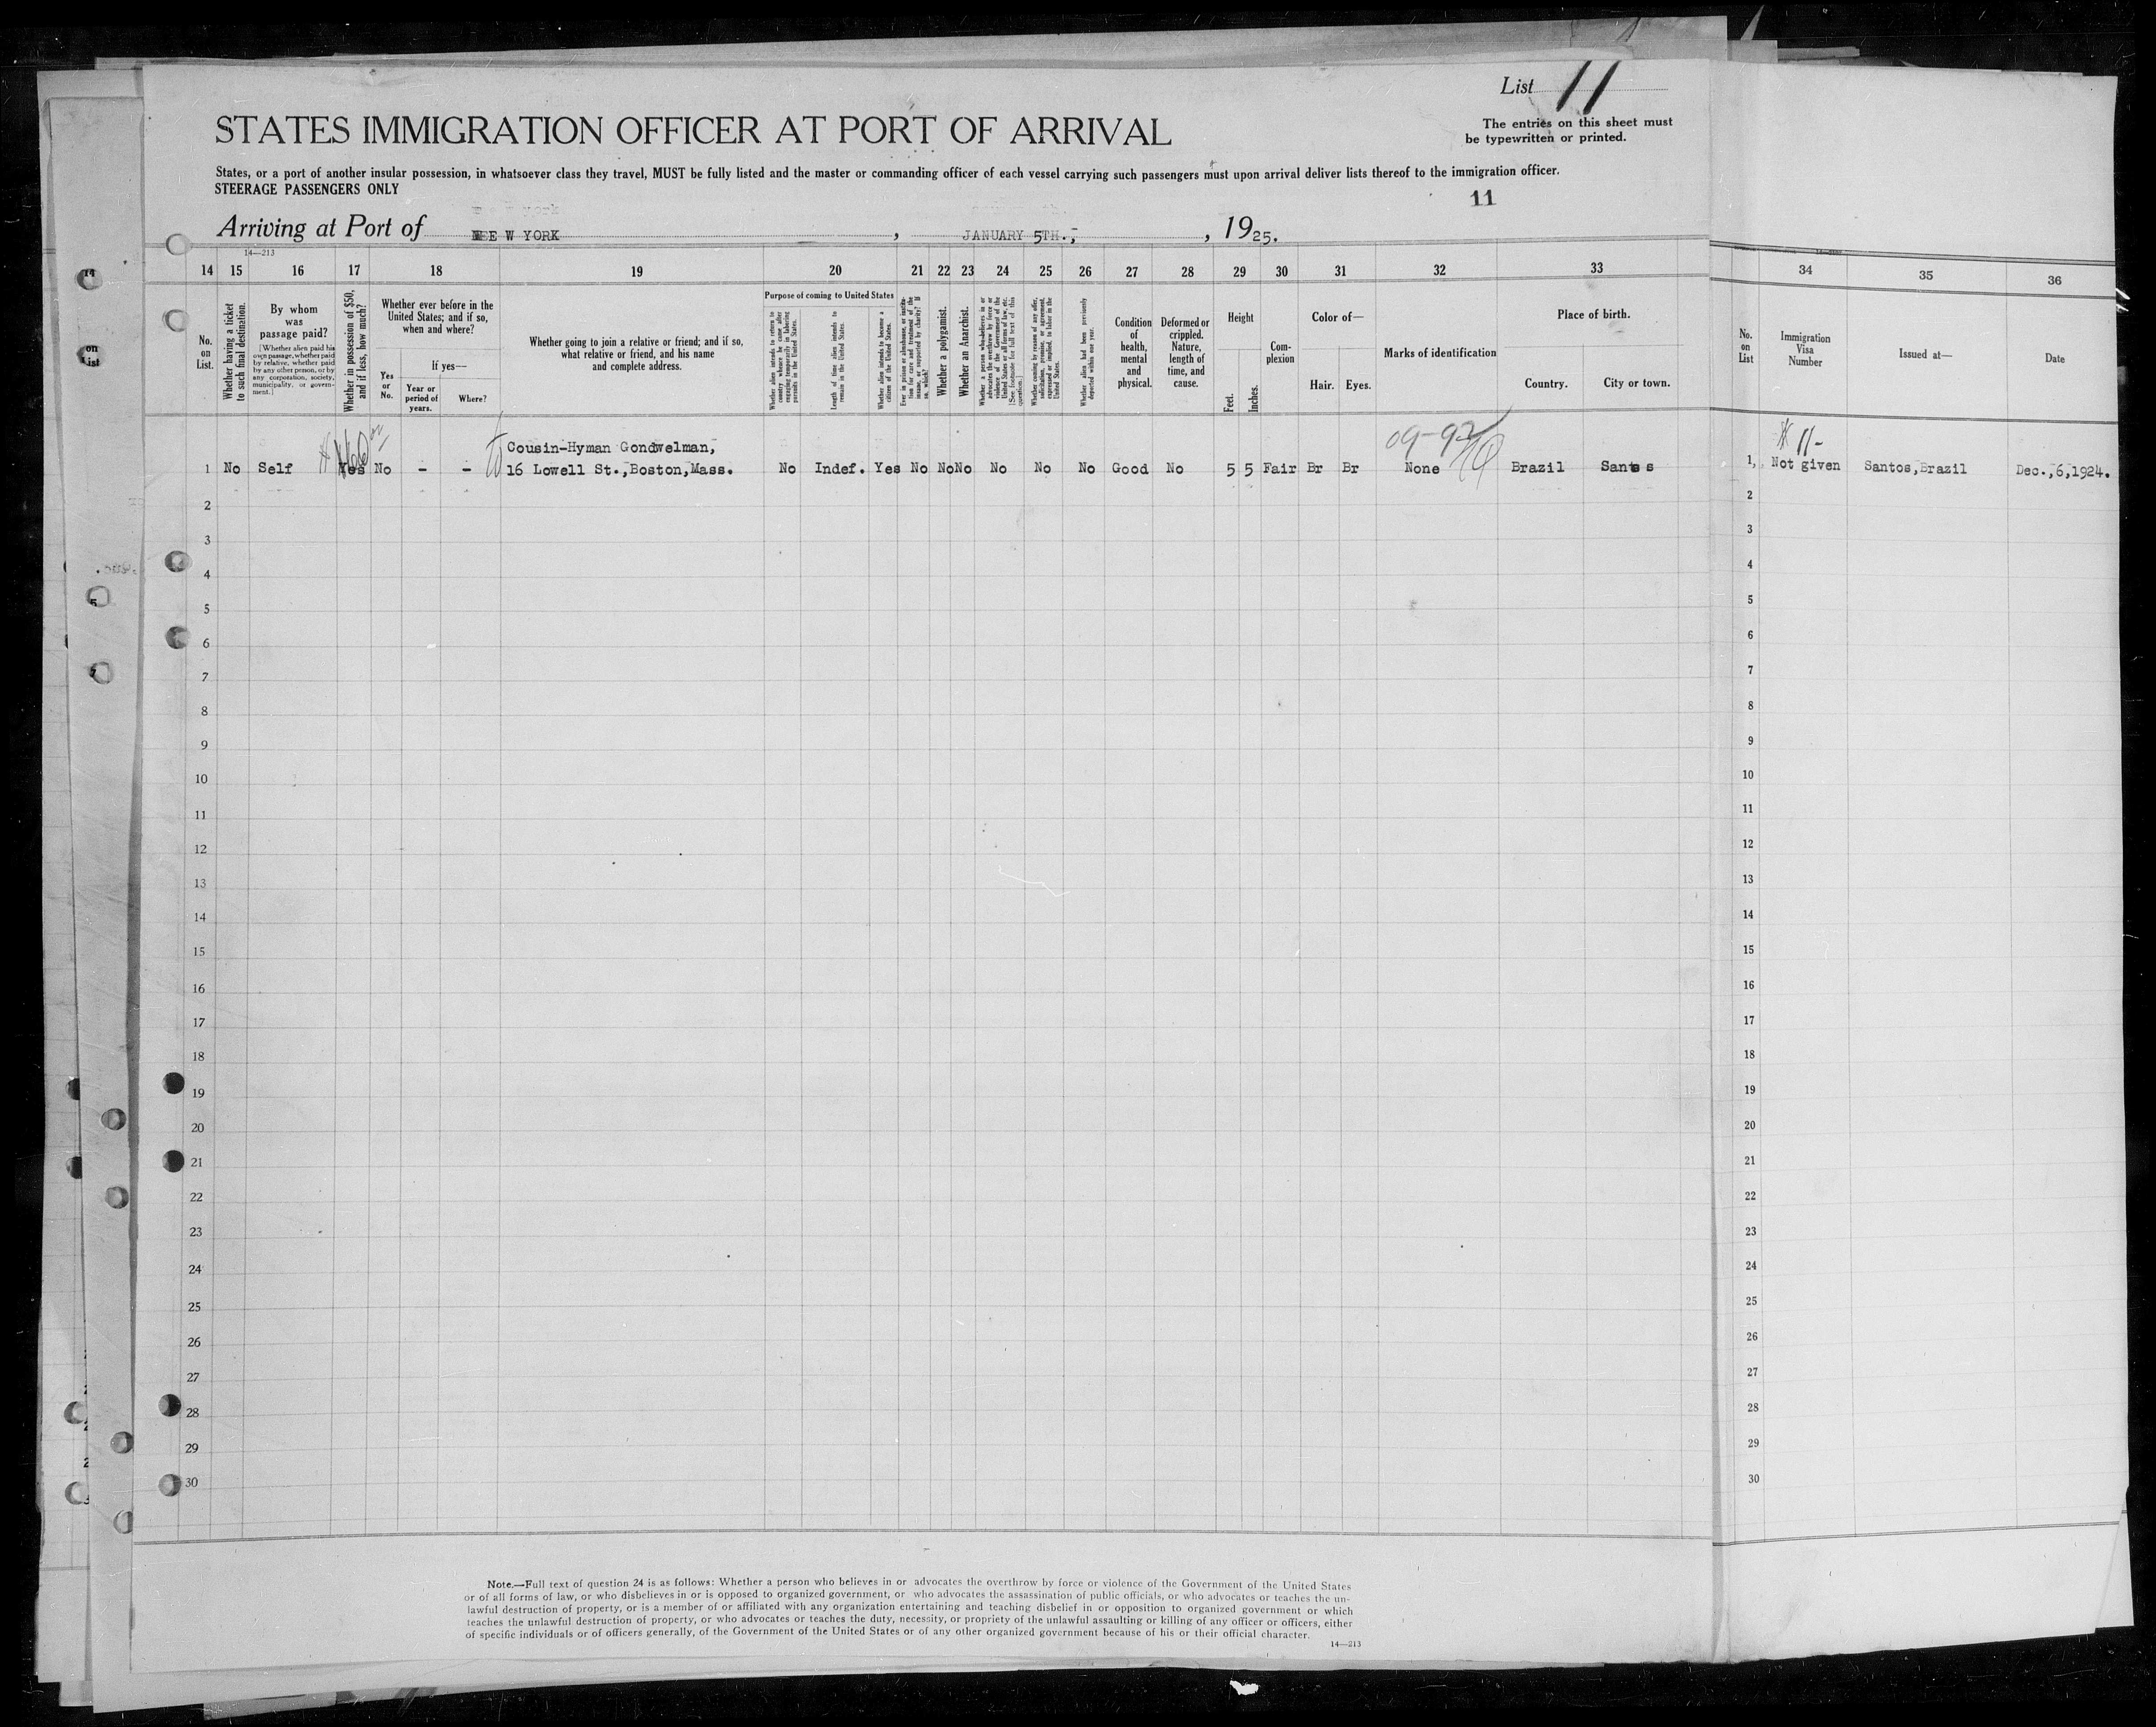 List 11
STATES IMMIGRATION OFFICER AT PORT OF ARRIVAL
The entries on this sheet must
be typewritten or printed.
States, or a port of another insular possession, in whatsoever class they travel, MUST be fully listed and the master or commanding officer of each vessel carrying such passengers must upon arrival deliver lists thereof to the immigration officer.
STEERAGE PASSENGERS ONLY
11
Arriving at Port of NEW YORK, JANUARY 5TH., 1925.
14—213
14 15 16 17 18 19 20 21 22 23 24 25 26 27 28 29 30 31 32 33 34 35 36
No. on List.
Whether having a ticket to such final destination.
By whom was passage paid?
[Whether alien paid his own passage, whether paid by relative, whether paid by any other person, or by any corporation, society, municipality, or government.]
Whether in possession of $50, and if less, how much?
Whether ever before in the United States; and if so, when and where?
Yes or No.
If yes—
Year or period of years.
Where?
Whether going to join a relative or friend; and if so, what relative or friend, and his name and complete address.
Purpose of coming to United States
Whether alien intends to return to country whence he came after engaging temporarily in laboring pursuits in the United States.
Length of time alien intends to remain in the United States.
Whether alien intends to become a citizen of the United States.
Ever in prison or almshouse, or institution for care and treatment of the insane, or supported by charity? If so, which?
Whether a polygamist.
Whether an Anarchist.
Whether a person who believes in or advocates the overthrow by force or violence of the Government of the United States or all forms of law, etc. [See footnote for full text of this question.]
Whether coming by reason of any offer, solicitation, promise, or agreement, expressed or implied, to labor in the United States.
Whether alien had been previously deported within one year.
Condition of health, mental and physical.
Deformed or crippled. Nature, length of time, and cause.
Height
Feet. Inches.
Complexion
Color of—
Hair. Eyes.
Marks of identification
Place of birth.
Country. City or town.
No. on List
Immigration Visa Number
Issued at—
Date
09-92
# 11-
Cousin-Hyman Gondwelman,
1 No Self Yes No - - 16 Lowell St.,Boston,Mass. No Indef. Yes No No No No No No Good No 5 5 Fair Br Br None Brazil Santos 1, Not given Santos,Brazil Dec.,6,1924.
2 2
3 3
4 4
5 5
6 6
7 7
8 8
9 9
10 10
11 11
12 12
13 13
14 14
15 15
16 16
17 17
18 18
19 19
20 20
21 21
22 22
23 23
24 24
25 25
26 26
27 27
28 28
29 29
30 30
Note.—Full text of question 24 is as follows: Whether a person who believes in or advocates the overthrow by force or violence of the Government of the United States
or of all forms of law, or who disbelieves in or is opposed to organized government, or who advocates the assassination of public officials, or who advocates or teaches the un-
lawful destruction of property, or is a member of or affiliated with any organization entertaining and teaching disbelief in or opposition to organized government or which
teaches the unlawful destruction of property, or who advocates or teaches the duty, necessity, or propriety of the unlawful assaulting or killing of any officer or officers, either
of specific individuals or of officers generally, of the Government of the United States or of any other organized government because of his or their official character.
14—213